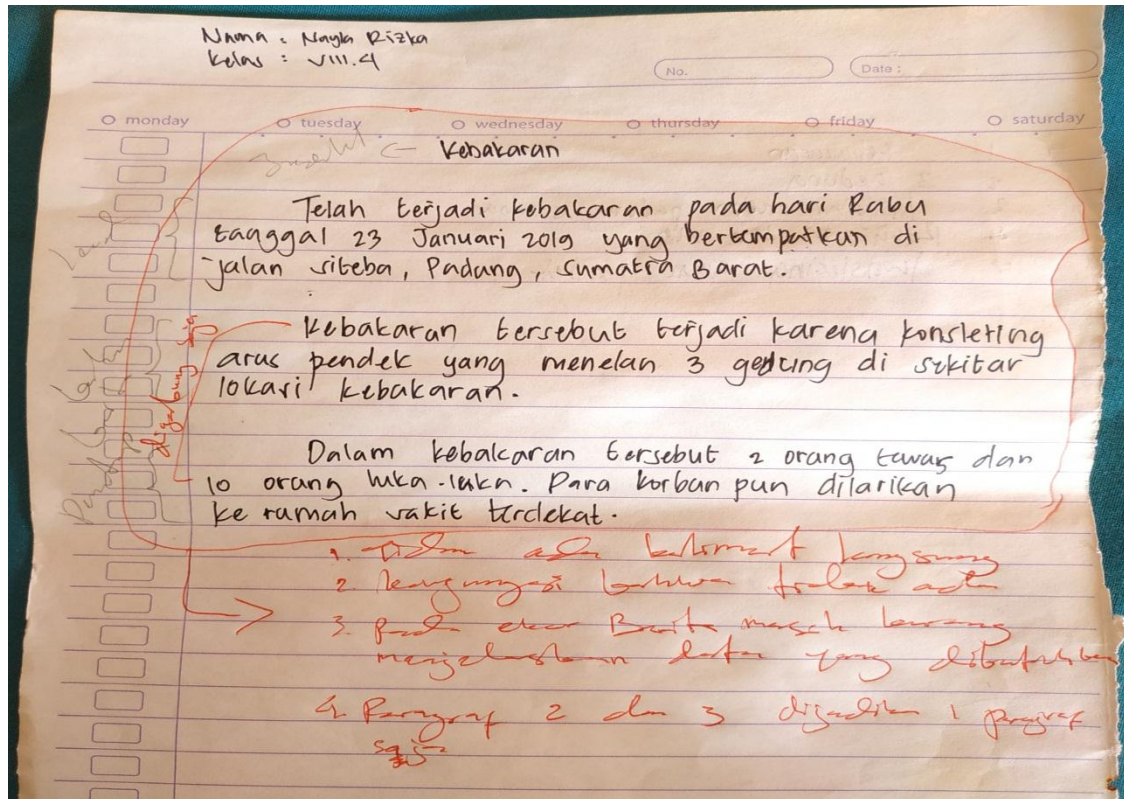 Nama : Nayla Rizka
Kelas : VIII.4
No.
Date :
monday tuesday wednesday thursday friday saturday
← Kebakaran
Telah terjadi kebakaran pada hari Rabu
tanggal 23 Januari 2019 yang bertempatkan di
jalan siteba, Padang, Sumatra Barat.
Kebakaran tersebut terjadi karena konsleting
arus pendek yang menelan 3 gedung di sekitar
lokasi kebakaran.
digabung
Dalam kebakaran tersebut 2 orang tewas dan
10 orang luka-luka. Para korban pun dilarikan
ke rumah sakit terdekat.
1. Tidak ada kalimat langsung
2. bahwa tidak ada
3. pada ekor Berita masih kurang
menjelaskan data yang dibutuhkan
4. Paragraf 2 dan 3 dijadikan 1 paragraf
saja